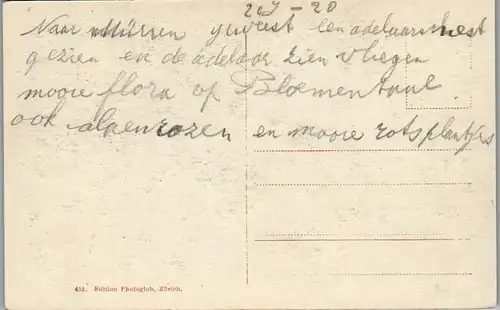 20/7 - 20
Naar Mürren geweest een adelaarsnest
gezien en de adelaar zien vliegen
mooie flora op Bloementaul.
ook alpenrozen en mooie rotsplantjes
451. Edition Photoglob, Zürich.